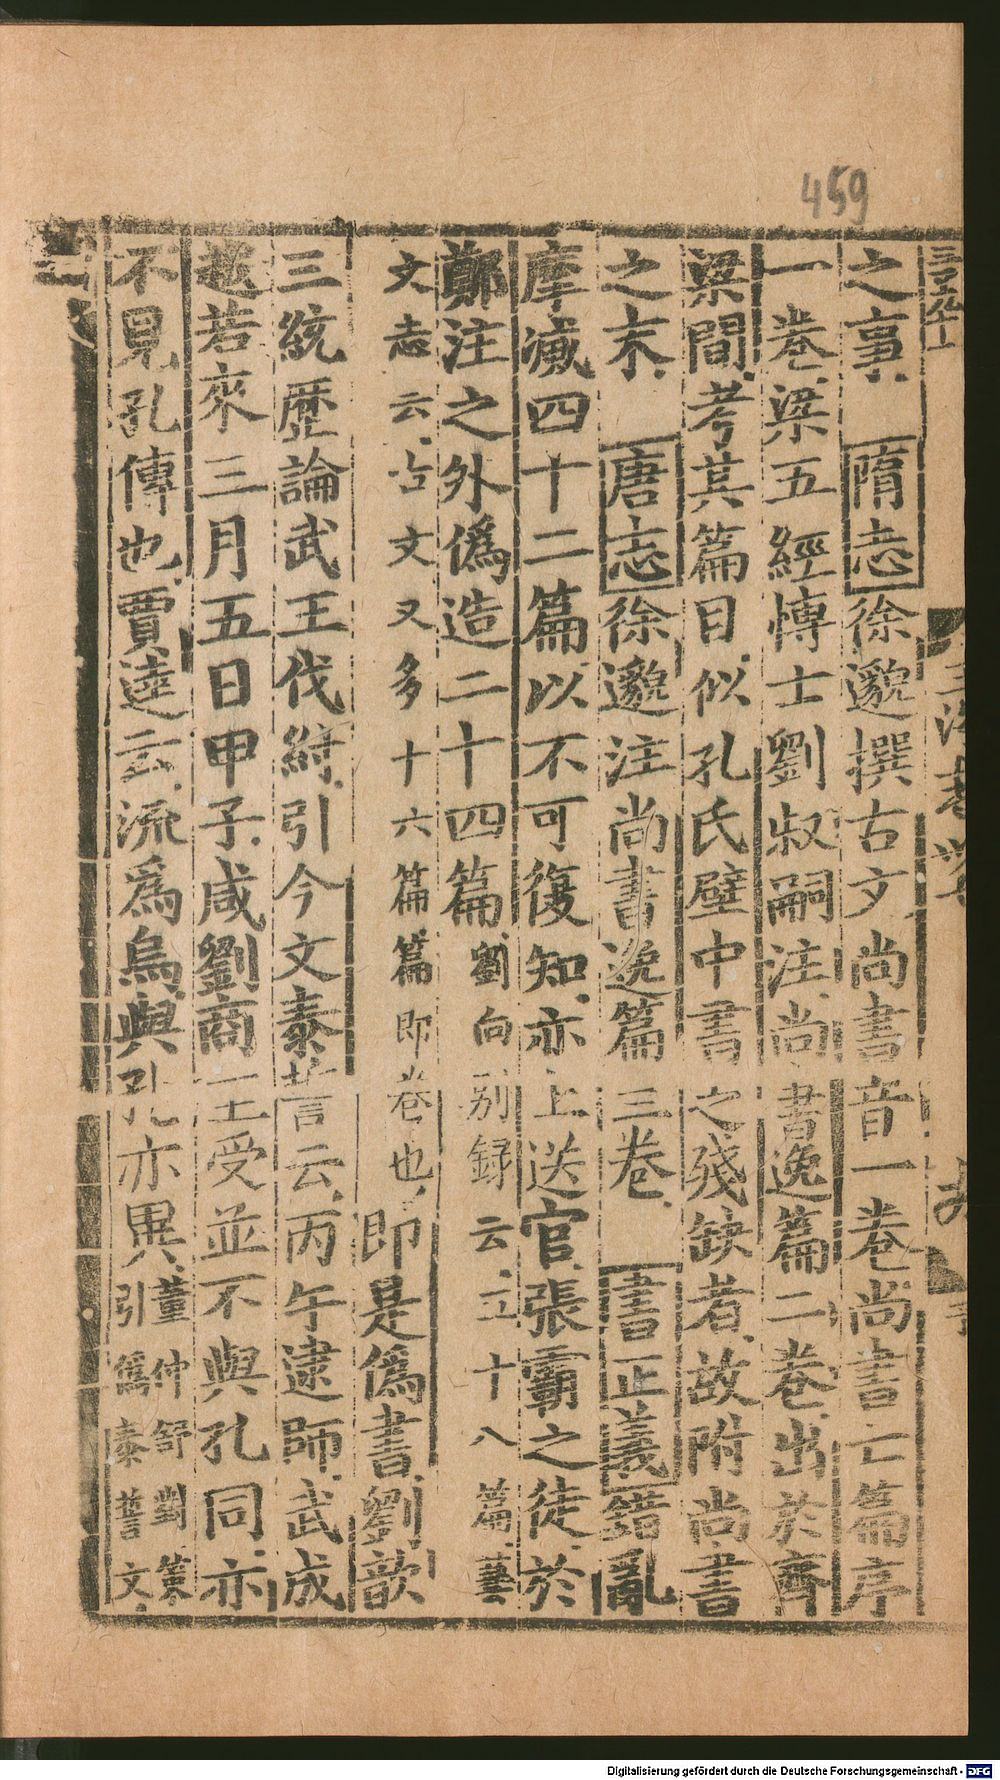 459
之事隋志徐邈撰古文尚書音一卷尚書亡篇序
一卷梁五經博士劉叔嗣注尚書逸篇二卷出於齊
梁間考其篇目似孔氏壁中書之殘缺者故附尚書
之末唐志徐邈注尚書逸篇三卷書正義錯亂
摩滅四十二篇以不可復知亦上送官張霸之徒於
鄭注之外僞造二十四篇劉向别録云五十八篇藝
文志云古文又多十六篇篇即卷也即是僞書劉歆
三統歷論武王伐紂引今文泰誓云丙午逮師武成
越若來三月五日甲子咸劉商王受並不與孔同亦
不見孔傳也賈逵云流爲烏與孔亦異董仲舒對策
引爲泰誓文
Digitalisierung gefördert durch die Deutsche Forschungsgemeinschaft - DFG